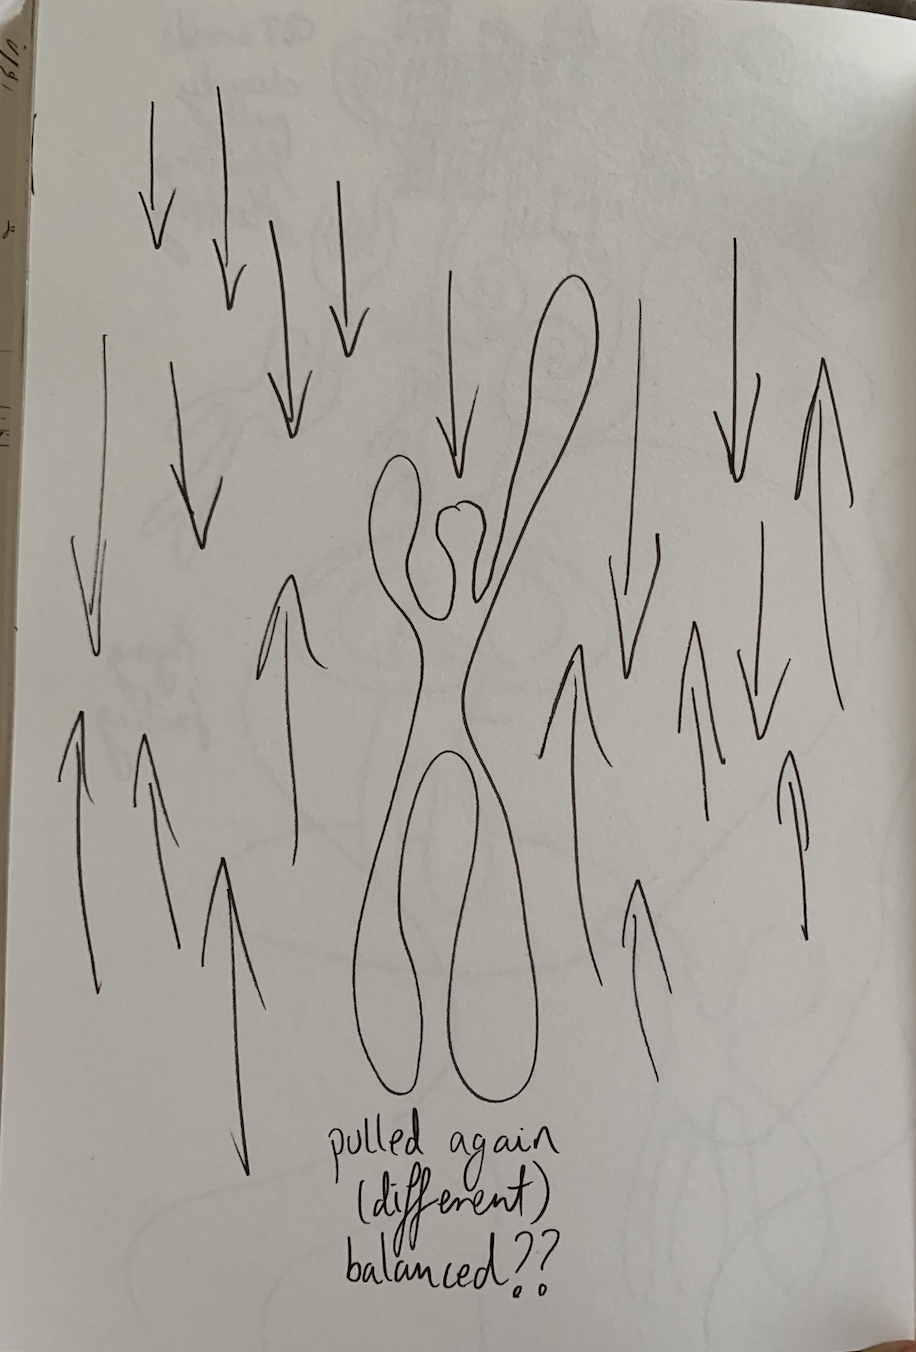 pulled again
(different)
balanced??